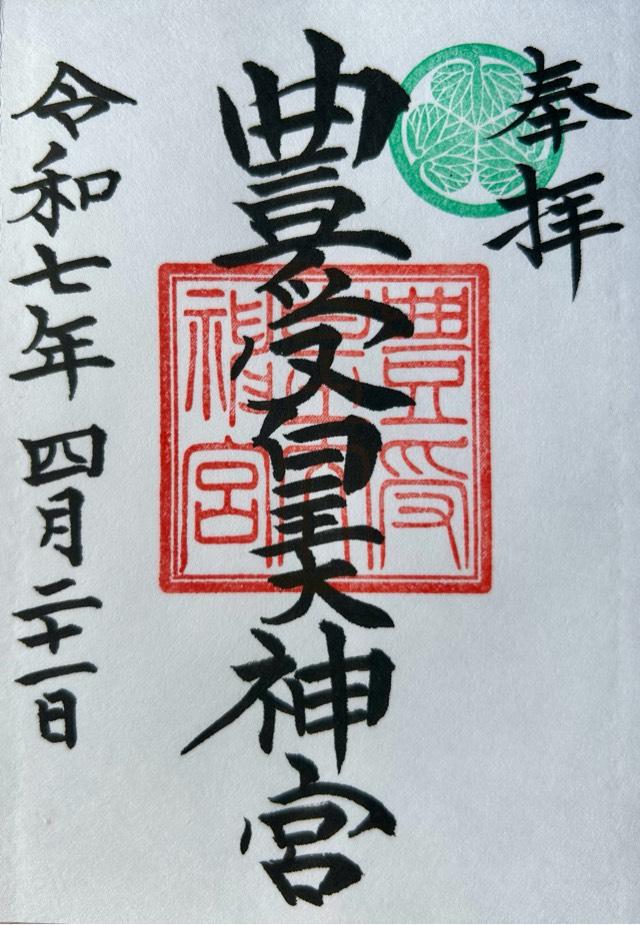 奉拝
豊受皇大神宮
豊受皇大神宮
令和七年四月二十一日